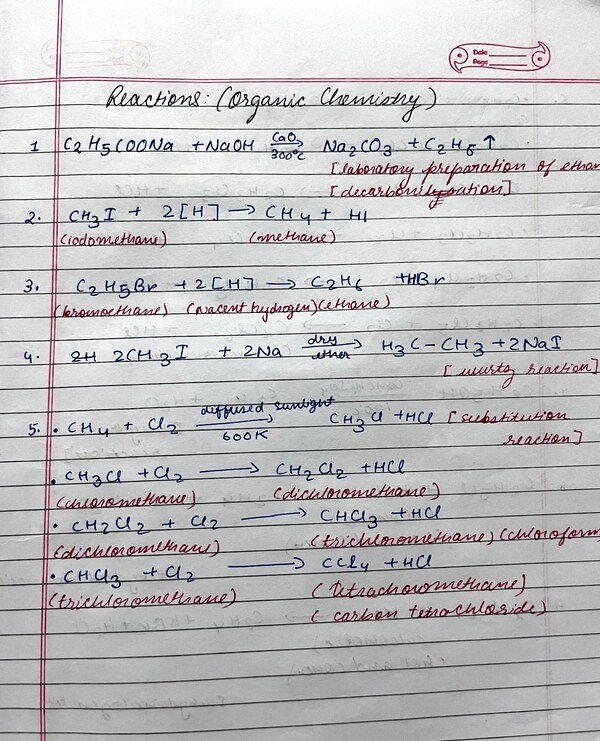 Date
Page
Reactions: (Organic Chemistry)
1 C2H5COONa + NaOH CaO 300°C → Na2CO3 + C2H6 ↑
[laboratory preparation of ethan
2. CH3I + 2[H] → CH4 + HI
(iodomethane) (methane)
3. C2H5Br + 2[H] → C2H6 + HBr
(bromoethane) (nacent hydrogen) (ethane)
4. 2CH3I + 2Na dry ether → H3C-CH3 + 2NaI
[wurtz reaction]
5. • CH4 + Cl2 diffused sunlight 600K → CH3Cl + HCl [substitution
reaction]
• CH3Cl + Cl2 → CH2Cl2 + HCl
(chloromethane) (dichloromethane)
• CH2Cl2 + Cl2 → CHCl3 + HCl
(dichloromethane) (trichloromethane) (chloroform
• CHCl3 + Cl2 → CCl4 + HCl
(trichloromethane) (tetrachoromethane)
(carbon tetrachloride)